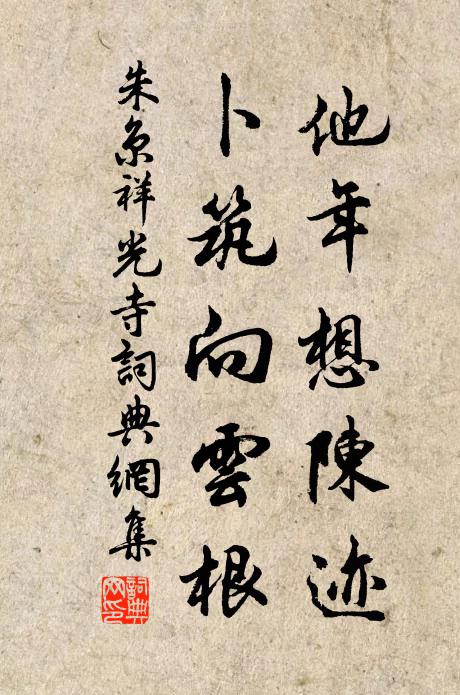 他年想陳迹
卜筑向雲根
朱京祥光寺詞典網集
詞典網印